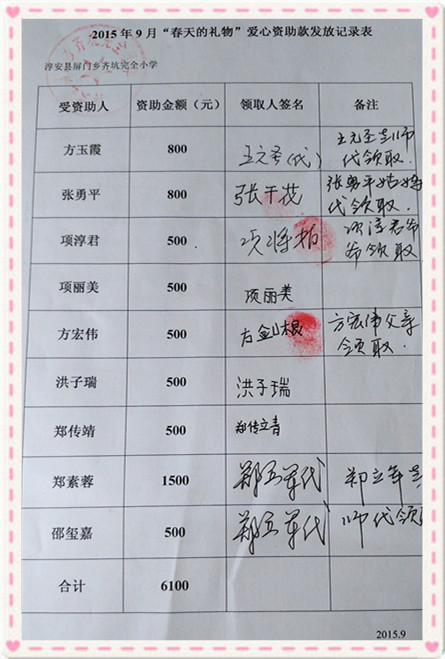 2015年9月“春天的礼物”爱心资助款发放记录表
淳安县屏门乡齐坑完全小学
受资助人 资助金额（元） 领取人签名 备注
方玉霞 800 王元圣(代) 王元圣老师
代领取.
张勇平 800 张干花 张勇平姑妈
代领取.
项淳君 500 项将柏 项淳君爷
爷领取
项丽美 500 项丽美
方宏伟 500 方金山根 方宏伟父亲
领取.
洪子瑞 500 洪子瑞
郑传靖 500 郑传立青
郑素蓉 1500 代
邵玺嘉 500 代 师代领
合计 6100
2015.9